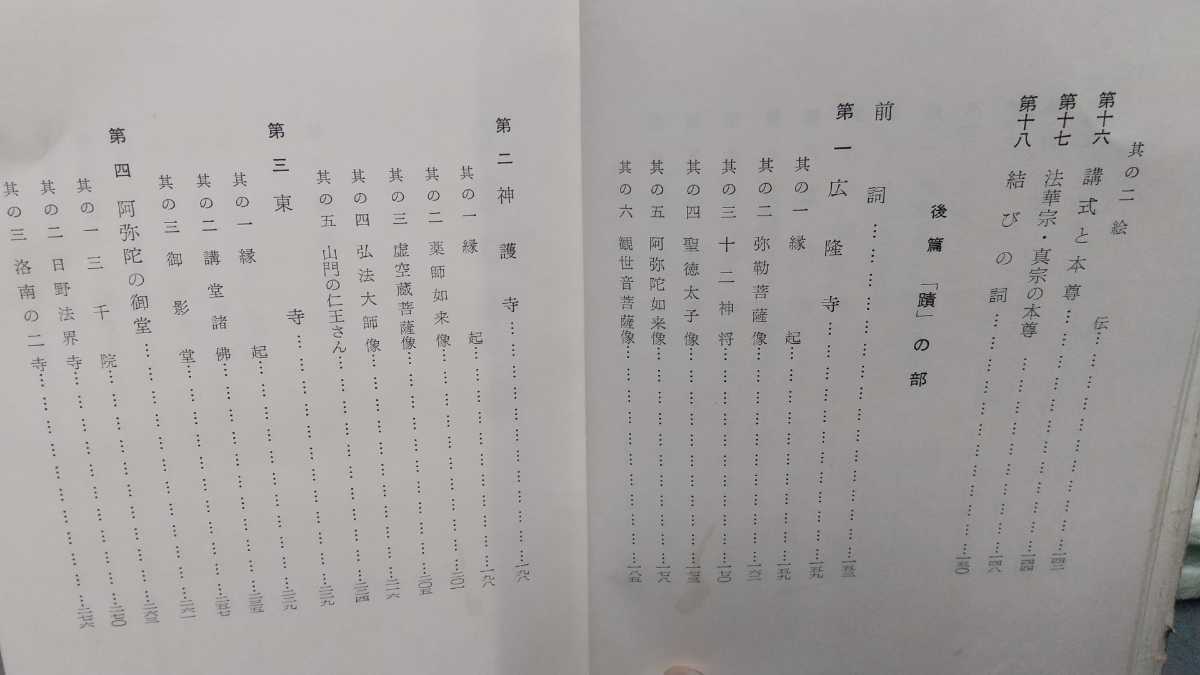 其の二 絵伝……一四二
第十六 講式と本尊……一四四
第十七 法華宗・真宗の本尊……一四八
第十八 結びの詞……一五〇
後篇 「蹟」の部
前詞……一五三
第一 広隆寺……一五九
其の一 縁起……一五九
其の二 弥勒菩薩像……一六二
其の三 十二神将……一七〇
其の四 聖徳太子像……一七三
其の五 阿弥陀如来像……一七八
其の六 観世音菩薩像……一八五
第二 神護寺……一九八
其の一 縁起……一九八
其の二 薬師如来像……二〇一
其の三 虚空蔵菩薩像……二〇五
其の四 弘法大師像……二一六
其の五 山門の仁王さん……二二四
第三 東寺……二二九
其の一 縁起……二二九
其の二 講堂諸佛……二三五
其の三 御影堂……二五七
第四 阿弥陀の御堂……二六一
其の一 三千院……二六三
其の二 日野法界寺……二七〇
其の三 洛南の二寺……二七六